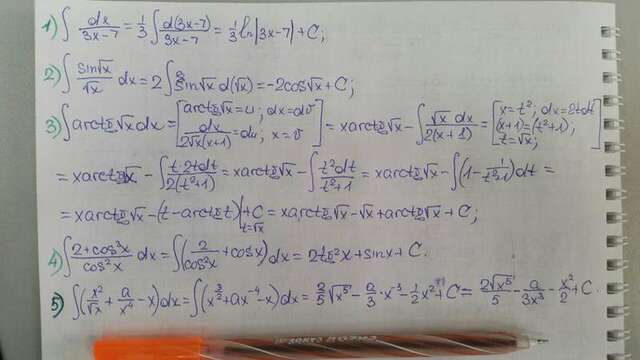 1) ∫ dx/(3x-7) = 1/3 ∫ d(3x-7)/(3x-7) = 1/3 ln|3x-7| + C;
2) ∫ sin√x/√x dx = 2∫ sin√x d(√x) = -2cos√x + C;
3) ∫ arctg√x dx = [arctg√x = u; dx = dv dx/(2√x(x+1)) = du, x = v] = x arctg√x - ∫ √x dx/(2(x+1)) = [x = t²; dx = 2tdt (x+1) = (t²+1); t = √x;]
= x arctg√x - ∫ t·2tdt/(2(t²+1)) = x arctg√x - ∫ t²dt/(t²+1) = x arctg√x - ∫(1 - 1/(t²+1))dt =
= x arctg√x - (t - arctg t)|t=√x + C = x arctg√x - √x + arctg√x + C;
4) ∫ (2+cos³x)/cos²x dx = ∫(2/cos²x + cosx)dx = 2tgx + sinx + C.
5) ∫(x²/√x + a/x⁴ - x)dx = ∫(x^(3/2) + ax⁻⁴ - x)dx = 2/5 √x⁵ - a/3 · x⁻³ - 1/2 x² + C = 2√x⁵/5 - a/3x³ - x²/2 + C.